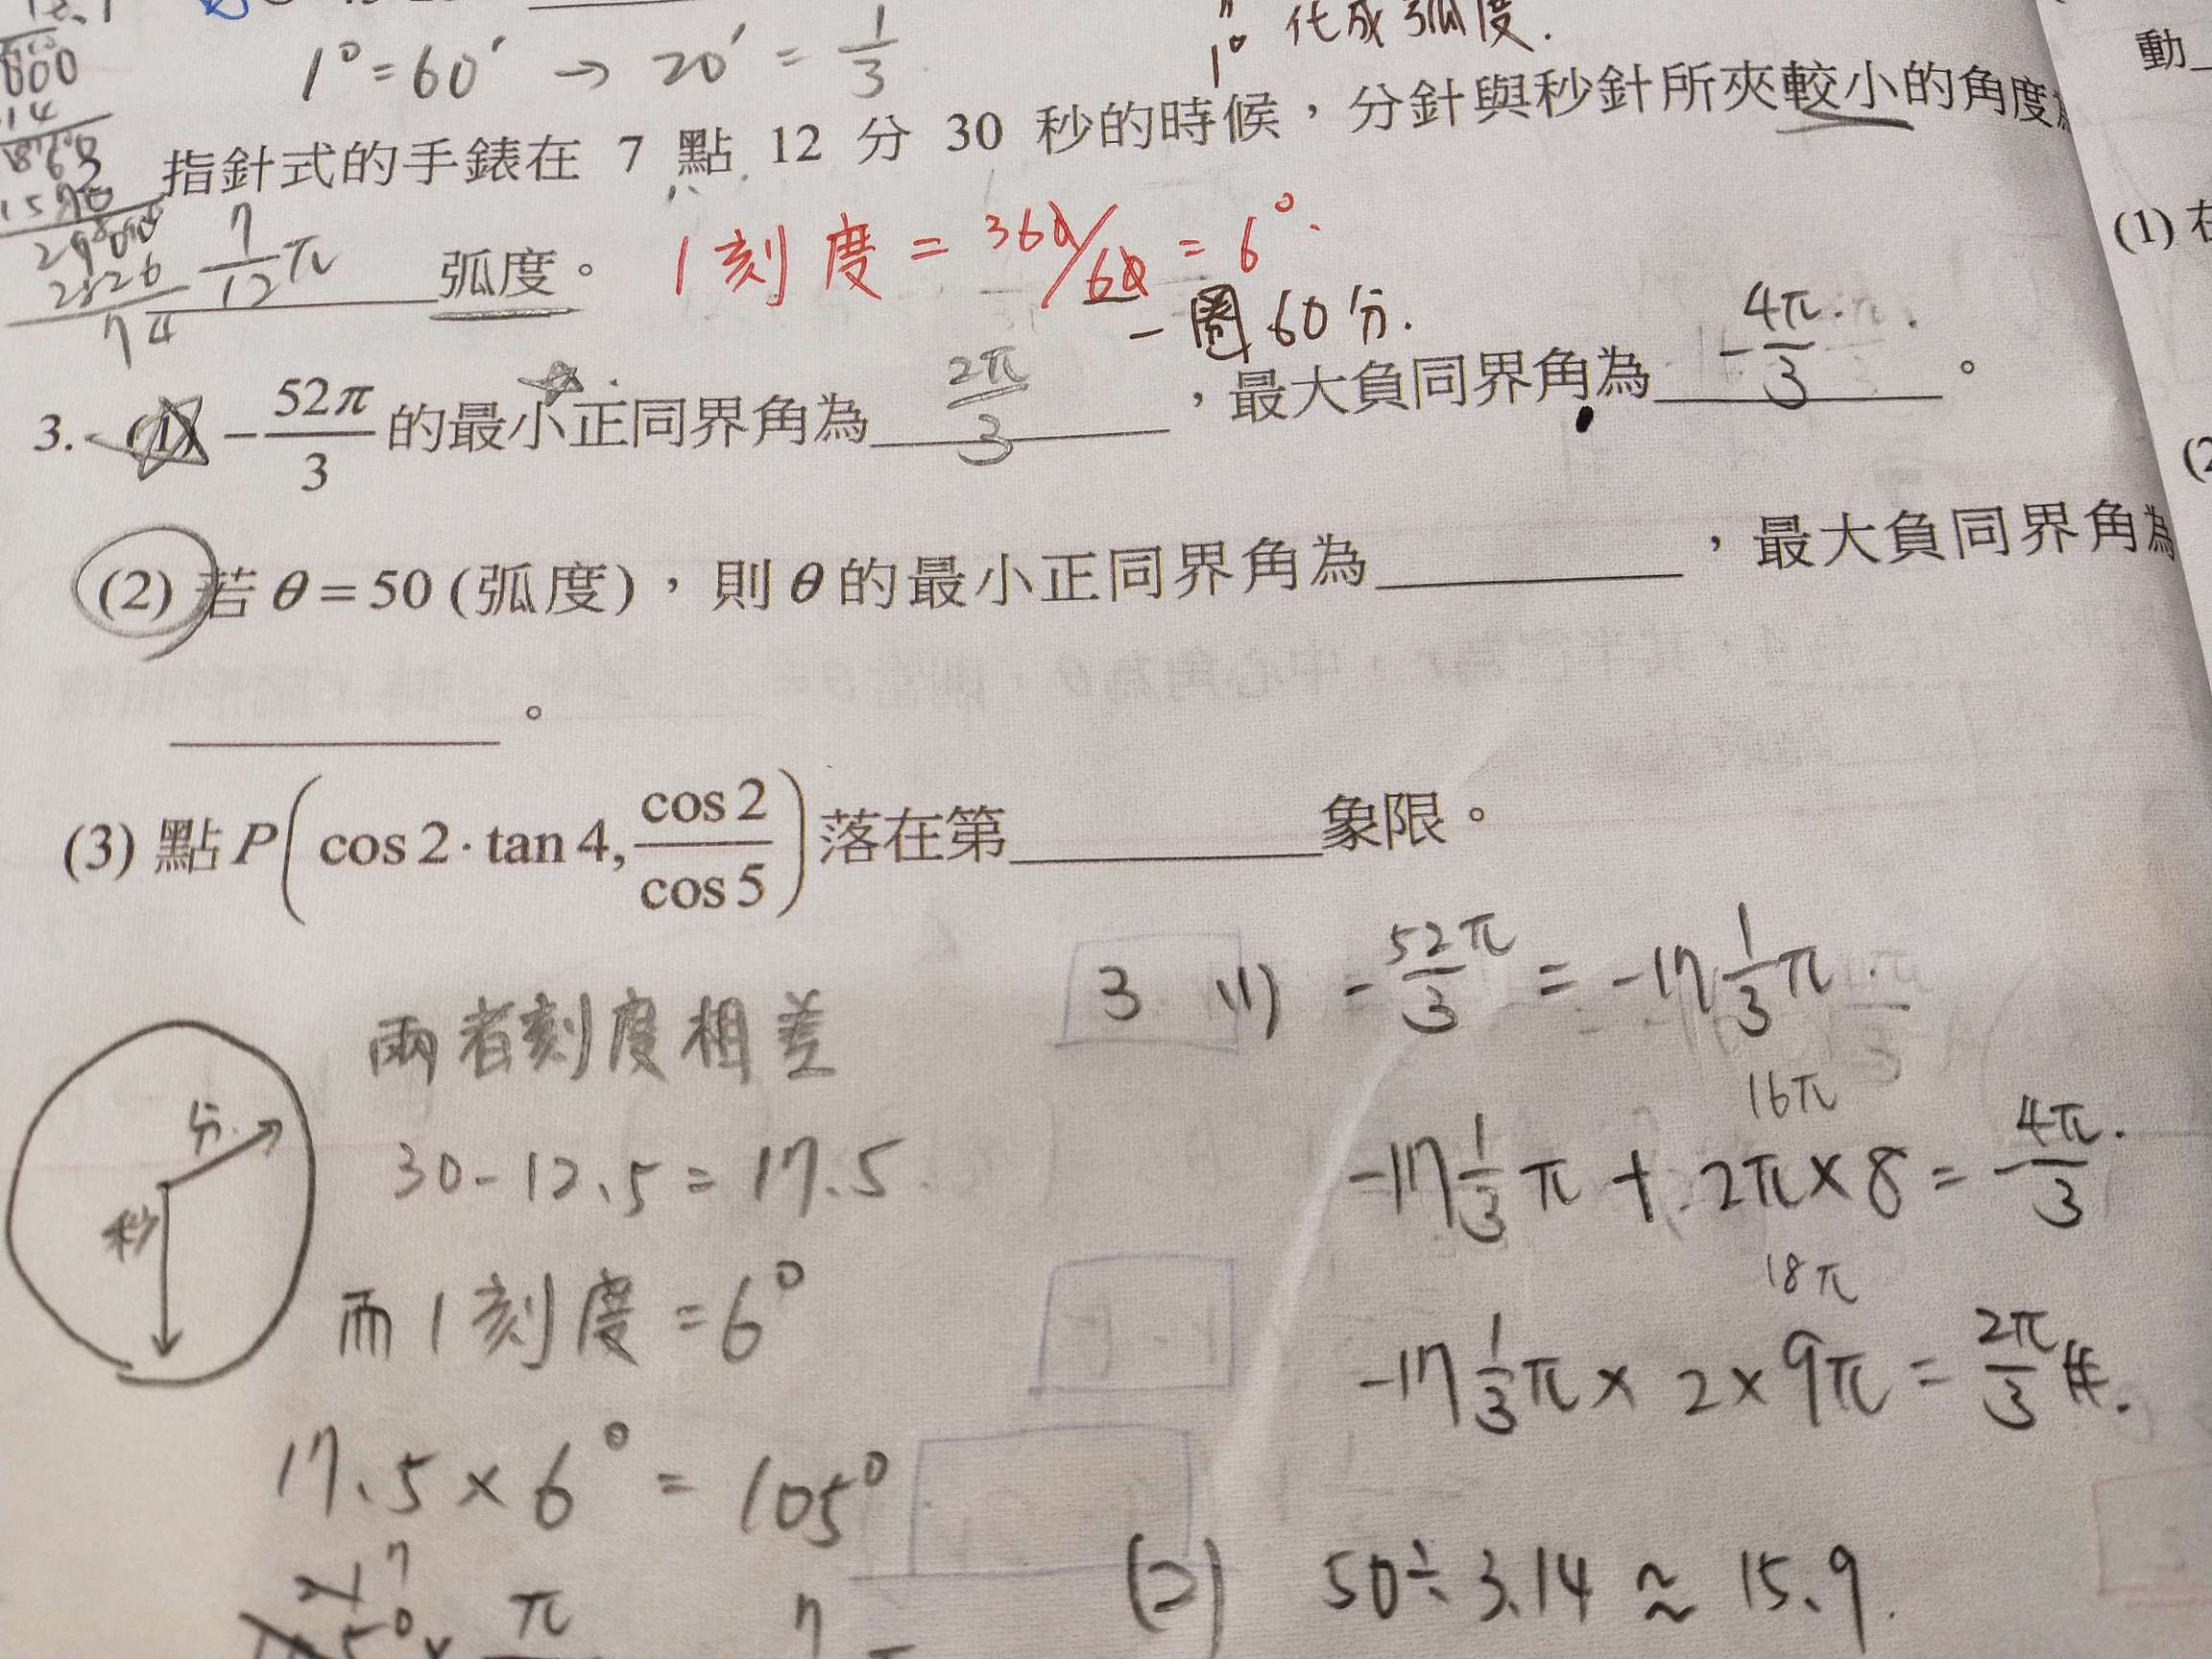 1°=60′ → 20′ = 1/3
1° 化成弧度.
指針式的手錶在 7 點 12 分 30 秒的時候，分針與秒針所夾較小的角度
7/12 π 弧度。
1刻度 = 360/60 = 6°.
一圈60分.
3. (1) -52π/3 的最小正同界角為 2π/3 ，最大負同界角為 -4π/3 。
(2) 若 θ = 50 (弧度)，則 θ 的最小正同界角為______，最大負同界角為
______。
(3) 點 P(cos 2 · tan 4, cos 2/cos 5) 落在第______象限。
兩者刻度相差
30-12.5 = 17.5
而 1 刻度 = 6°
17.5 × 6° = 105°
分
秒
3 (1) -52π/3 = -17 1/3 π.
16π
-17 1/3 π + 2π×8 = -4π/3.
18π
-17 1/3 π × 2×9π = 2π/3 #.
(2) 50÷3.14 ≈ 15.9.
動
(1) 在
(2